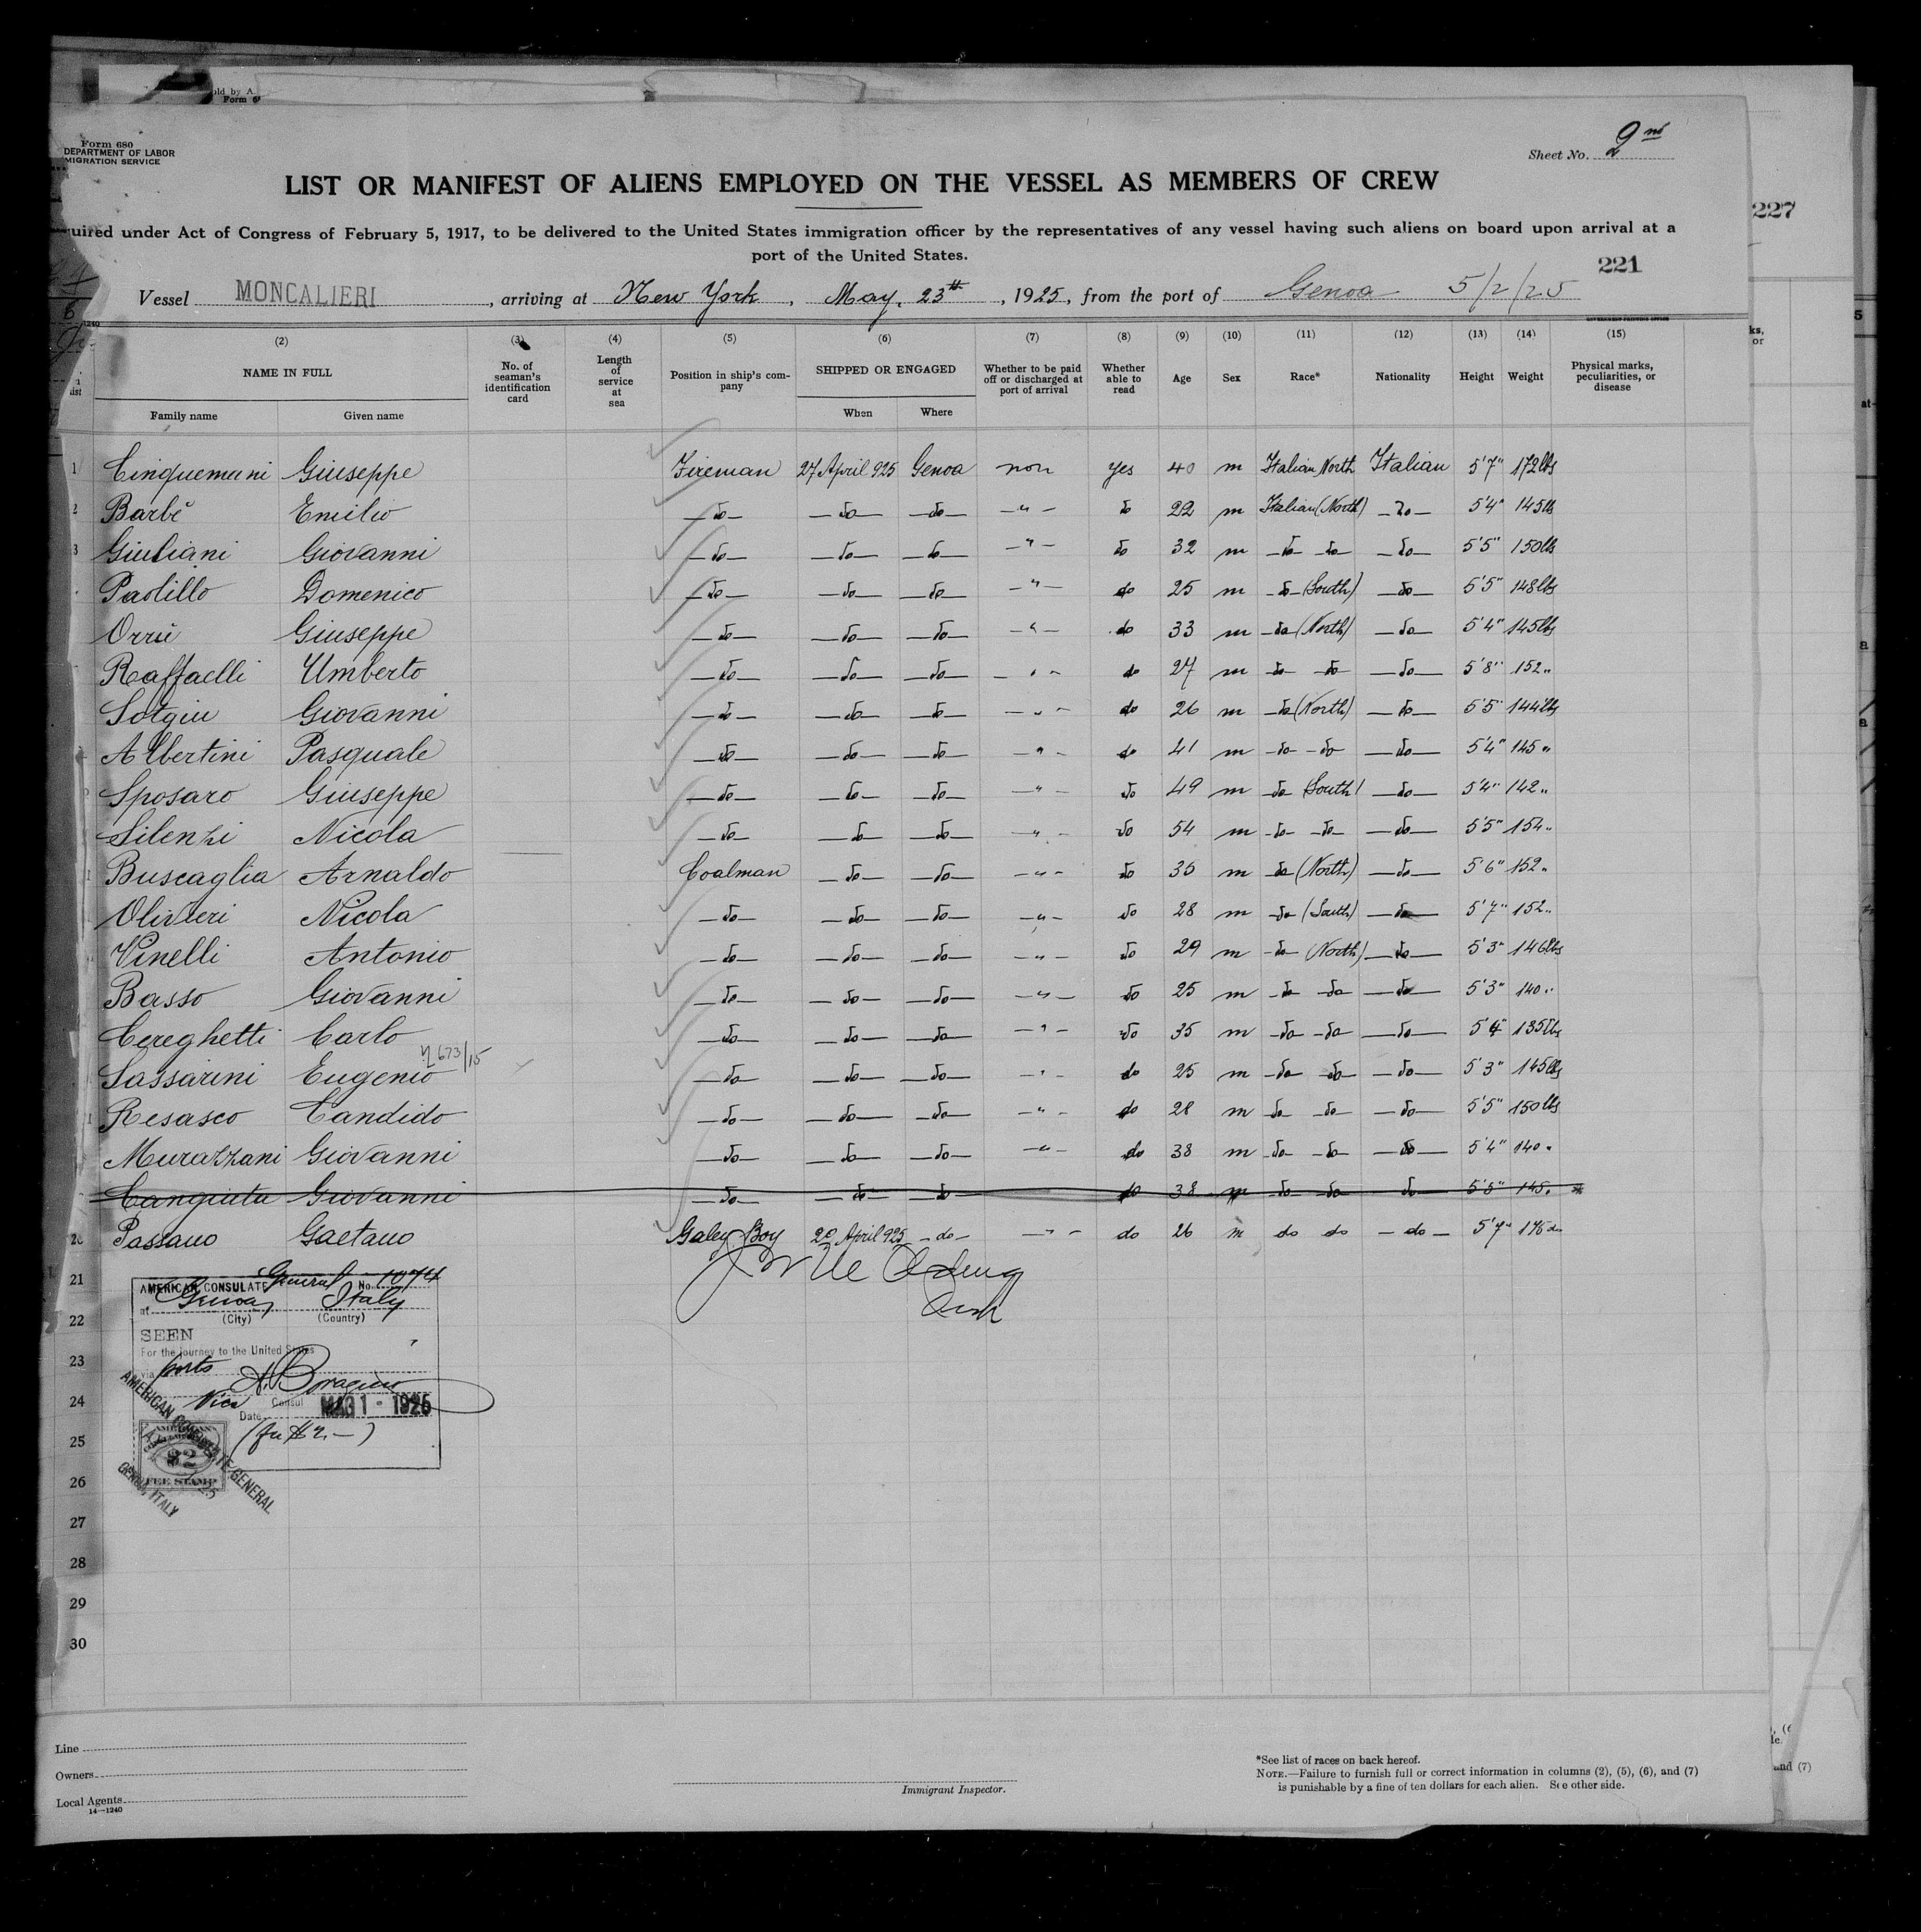 old by A.
Form 6
Form 680
DEPARTMENT OF LABOR
MIGRATION SERVICE
Sheet No. 2nd
LIST OR MANIFEST OF ALIENS EMPLOYED ON THE VESSEL AS MEMBERS OF CREW
quired under Act of Congress of February 5, 1917, to be delivered to the United States immigration officer by the representatives of any vessel having such aliens on board upon arrival at a
port of the United States.
227
221
Vessel MONCALIERI, arriving at New York, May, 23th, 1925, from the port of Genoa 5/2/25
(2) (3) (4) (5) (6) (7) (8) (9) (10) (11) (12) (13) (14) (15)
NAME IN FULL No. of seaman's identification card Length of service at sea Position in ship's company SHIPPED OR ENGAGED Whether to be paid off or discharged at port of arrival Whether able to read Age Sex Race* Nationality Height Weight Physical marks, peculiarities, or disease
Family name Given name When Where
1 Cinquemani Giuseppe Fireman 27 April 925 Genoa non yes 40 m Italian North Italian 5'7" 172lbs
2 Barbè Emilio —do— —do— —do— —"— do 22 m Italian (North) —do— 5'4" 145lb
3 Giuliani Giovanni —do— —do— —do— —"— do 32 m —do— —do— —do— 5'5" 150lbs
Paolillo Domenico —do— —do— —do— —"— do 25 m —do— (South) —do— 5'5" 148lbs
Orrù Giuseppe —do— —do— —do— —"— do 33 m —do (North) —do— 5'4" 145lbs
Raffaelli Umberto —do— —do— —do— —"— do 27 m —do— —do— —do— 5'8" 152"
Sotgiu Giovanni —do— —do— —do— —"— do 26 m —do (North) —do— 5'5" 144lbs
Albertini Pasquale —do— —do— —do— —"— do 41 m —do— —do— —do— 5'4" 145"
Sposaro Giuseppe —do— —do— —do— —"— do 49 m —do— (South) —do— 5'4" 142"
Silenzi Nicola —do— —do— —do— —"— do 54 m —do— —do— —do— 5'5" 154"
Buscaglia Arnaldo Coalman —do— —do— —"— do 35 m —do (North) —do— 5'6" 152"
Olivieri Nicola —do— —do— —do— —"— do 28 m —do (South) —do— 5'7" 152"
Vinelli Antonio —do— —do— —do— —"— do 29 m —do (North) —do— 5'3" 146lbs
Basso Giovanni —do— —do— —do— —"— do 25 m —do— —do— —do— 5'3" 140"
Cereghetti Carlo —do— —do— —do— —"— do 35 m —do— —do— —do— 5'4" 135lbs
673/15
Sassarini Eugenio —do— —do— —do— —"— do 25 m —do— —do— —do— 5'3" 145lbs
Resasco Candido —do— —do— —do— —"— do 28 m —do— —do— —do— 5'5" 150lbs
Murazzani Giovanni —do— —do— —do— —"— do 38 m —do— —do— —do— 5'4" 140"
Cangiata Giovanni —do— —do— —do— do 38 m —do— —do— —do— 5'5" 145"
20 Passano Gaetano Galey Boy 20 April 925 —do— —"— do 26 m do do —do— 5'7" 176 do
21
AMERICAN CONSULATE General No. 1074
at Genoa, Italy
(City) (Country)
22
SEEN
For the journey to the United States
23
via ports
24
Vice Consul
Date MAG 1 - 1925
25
(fee $2.—)
AMERICAN CONSULATE GENERAL
GENOA, ITALY
$2
FEE STAMP
26
27
28
29
30
Line
Owners
Local Agents
14—1240
Immigrant Inspector.
*See list of races on back hereof.
NOTE.—Failure to furnish full or correct information in columns (2), (5), (6), and (7)
is punishable by a fine of ten dollars for each alien. See other side.
and (7)